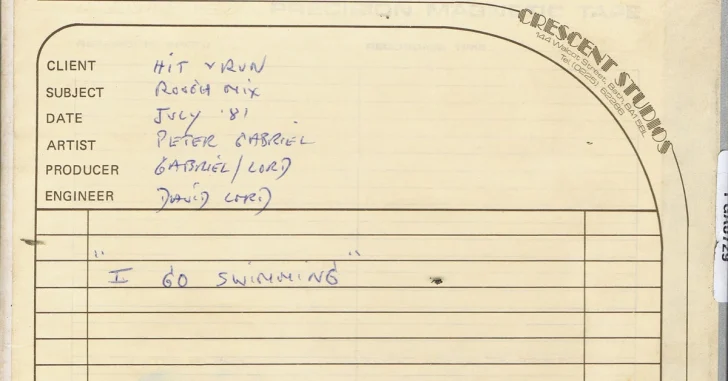 PRECISION MAGNETIC TAPE
CRESCENT STUDIOS
144 Walcot Street, Bath, BA1 5BL
Tel (0225) 62286
CLIENT HIT & RUN
SUBJECT ROUGH MIX
DATE JULY '81
ARTIST PETER GABRIEL
PRODUCER GABRIEL/LORD
ENGINEER DAVID LORD
" "
I GO SWIMMING